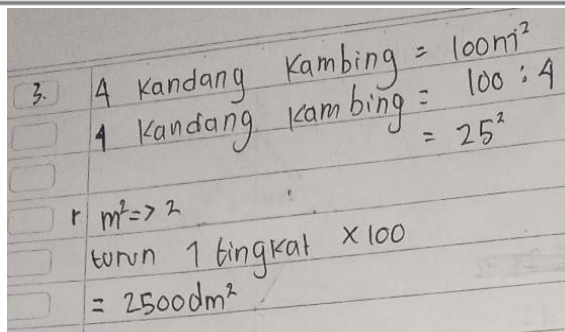 3. 4 Kandang Kambing = 100m²
1 Kandang Kambing = 100 : 4
= 25²
r m² => 2
turun 1 tingkat x 100
= 2500dm²